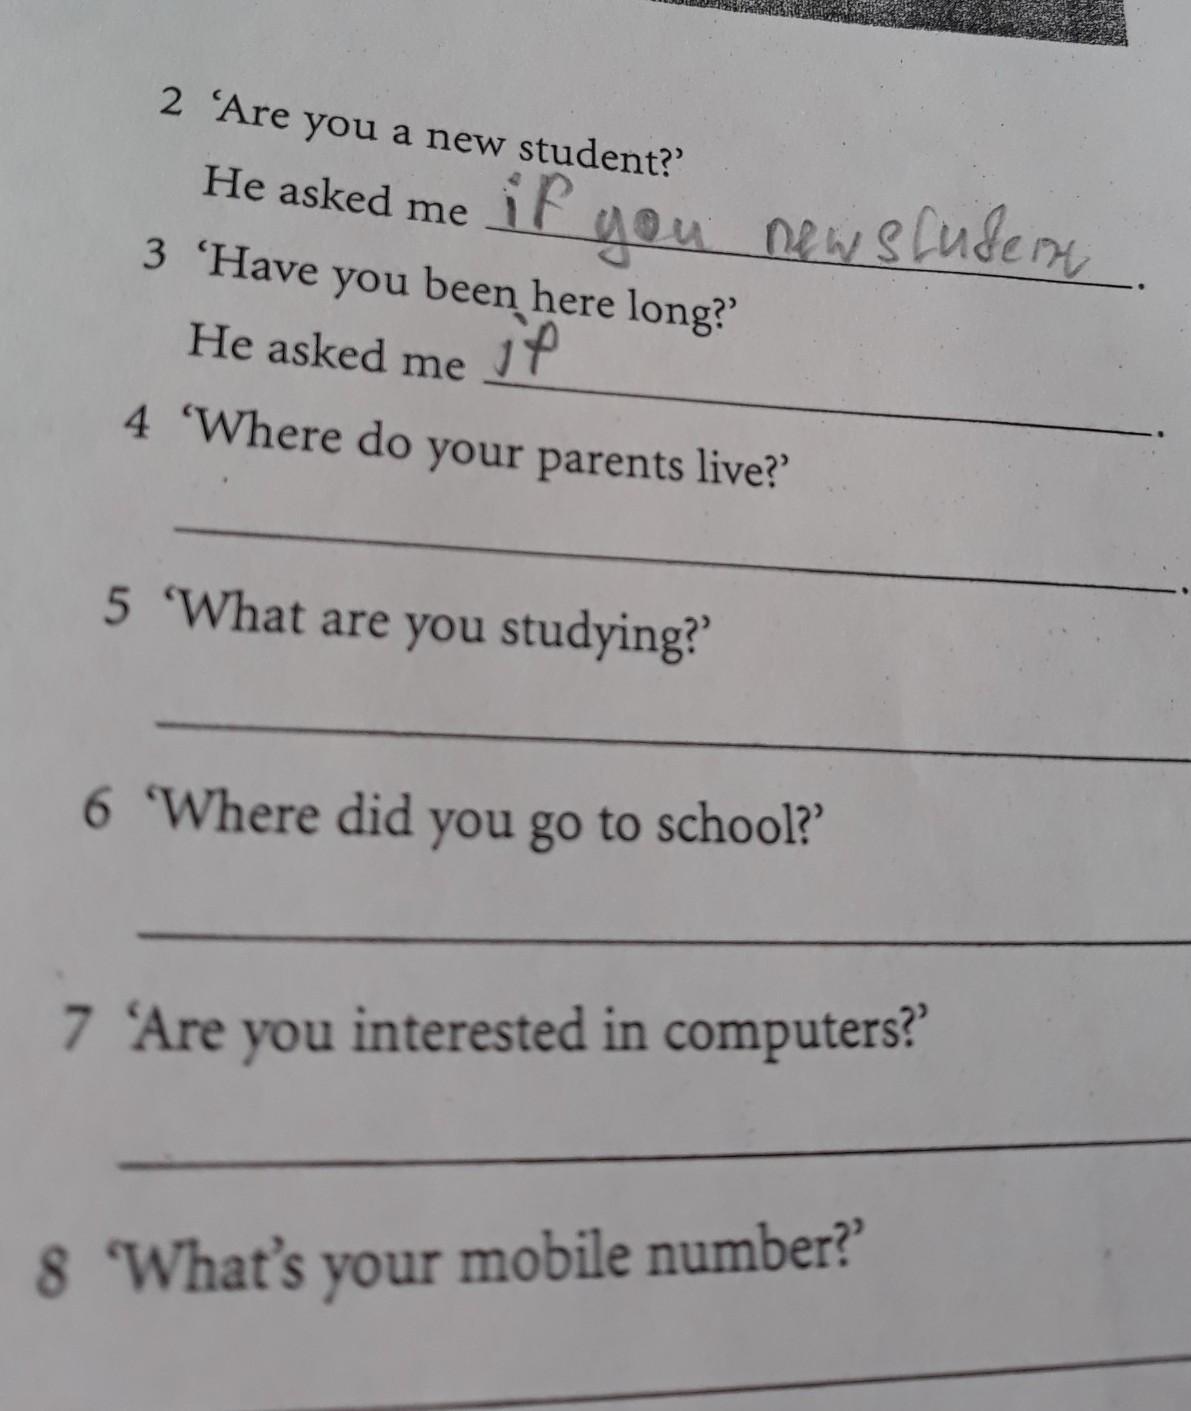 2 ‘Are you a new student?’
He asked me if you new student.
3 ‘Have you been here long?’
He asked me if .
4 ‘Where do your parents live?’
.
5 ‘What are you studying?’
6 ‘Where did you go to school?’
7 ‘Are you interested in computers?’
8 ‘What's your mobile number?’